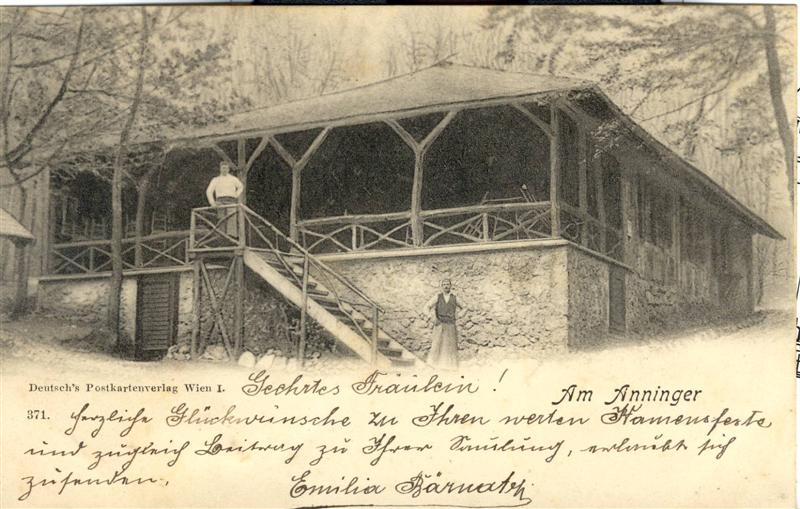 Deutsch's Postkartenverlag Wien I. Geehrtes Fräulein!
Am Anninger
371. herzliche Glückwünsche zu Ihren werten Namensfeste
und zugleich Beitrag zu Ihrer Samlung, erlaubt sich
zusenden.
Emilia